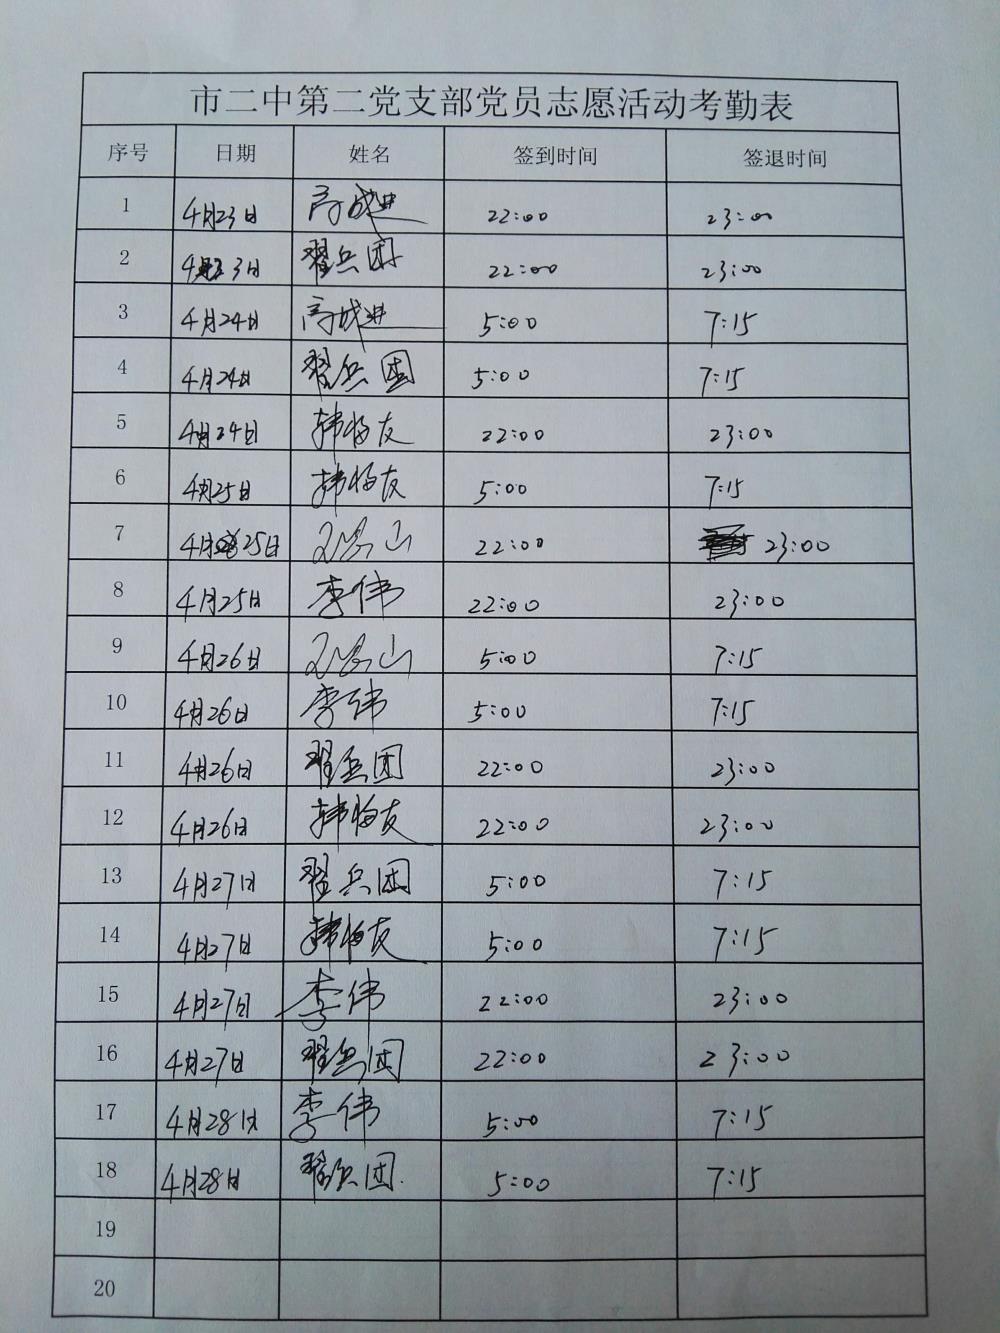 市二中第二党支部党员志愿活动考勤表
序号 日期 姓名 签到时间 签退时间
1 4月23日 高成进 22:00 23:00
2 4月23日 翟兵团 22:00 23:00
3 4月24日 高成进 5:00 7:15
4 4月24日 翟兵团 5:00 7:15
5 4月24日 韩 友 22:00 23:00
6 4月25日 韩 友 5:00 7:15
7 4月25日 山 22:00 23:00
8 4月25日 李伟 22:00 23:00
9 4月26日 山 5:00 7:15
10 4月26日 李伟 5:00 7:15
11 4月26日 翟兵团 22:00 23:00
12 4月26日 韩 友 22:00 23:00
13 4月27日 翟兵团 5:00 7:15
14 4月27日 韩 友 5:00 7:15
15 4月27日 李伟 22:00 23:00
16 4月27日 翟兵团 22:00 23:00
17 4月28日 李伟 5:00 7:15
18 4月28日 翟兵团 5:00 7:15
19
20